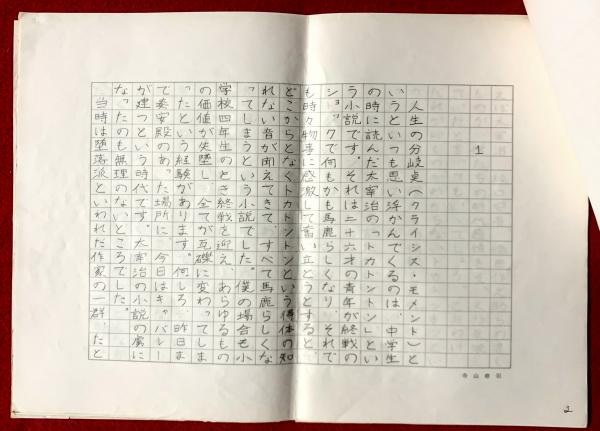 1
人生の分岐点(クライシス・モメント)と
いうといつも思い浮かんでくるのは、中学生
の時に読んだ太宰治の「トカトントン」とい
う小説です。それは二十六才の青年が終戦の
ショックで何もかも馬鹿らしくなり、それで
も時々物事に感激して奮い立とうとすると、
どこからとなくトカトントンという得体の知
れない音が聞えてきて、すべて馬鹿らしくな
ってしまうという小説でした。僕の場合も小
学校四年生のとき終戦を迎え、あらゆるもの
の価値が失墜し、全てが瓦礫に変わってしま
ったという経験があります。何しろ、昨日ま
で奉安殿のあった場所に、今日はキャバレー
が建つという時代です。太宰治の小説の虜に
なったのも無理のないところでした。
当時は堕落派といわれた作家の一群、たと
寺山修司
2